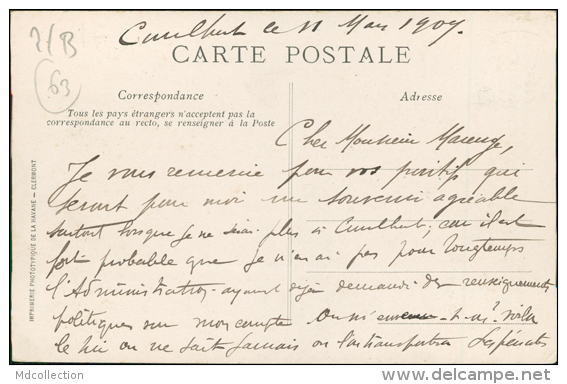 Cunlhat le 11 Mai 1907.
CARTE POSTALE
63
Correspondance
Adresse
Tous les pays étrangers n'acceptent pas la
correspondance au recto, se renseigner à la Poste
Cher Monsieur
Je vous remercie pour vos positifs qui
seront pour moi un souvenir agréable
surtout lorsque je ne serai plus à Cunlhat, car il est
fort probable que je n'en ai pas pour longtemps
l'Administration ayant déjà demandé des renseignements
politiques sur mon compte on m'en -t-on? voilà
le hic on ne sait jamais on l'on transportera
IMPRIMERIE PHOTOTYPIQUE DE LA HAVANE — CLERMONT
Mdcollection
http://www.delcampe.net